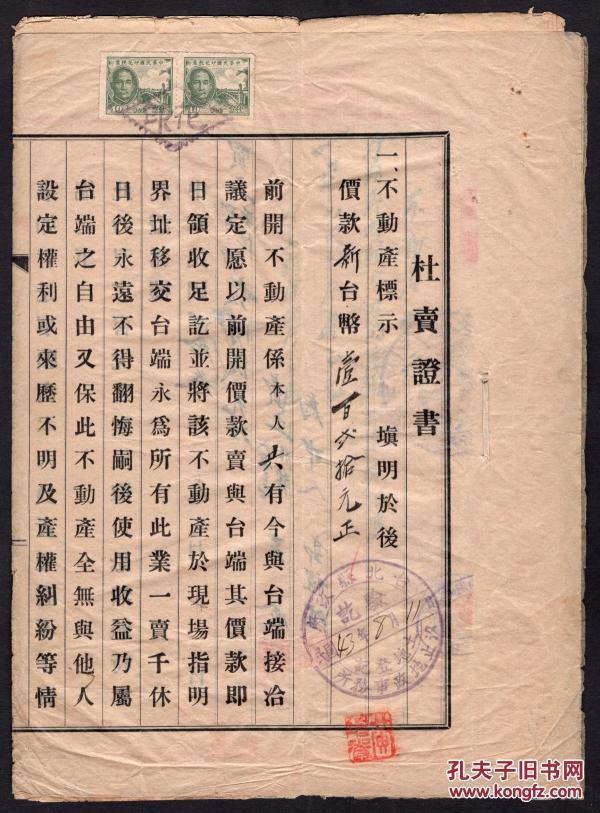 杜賣證書
一、不動產標示　填明於後
價款新台幣壹百貳拾元正
前開不動產係本人共有今與台端接洽
議定愿以前開價款賣與台端其價款即
日領收足訖並將該不動產於現場指明
界址移交台端永為所有此業一賣千休
日後永遠不得翻悔嗣後使用收益乃屬
台端之自由又保此不動產全無與他人
設定權利或來歷不明及產權糾紛等情
孔夫子旧书网
www.kongfz.com